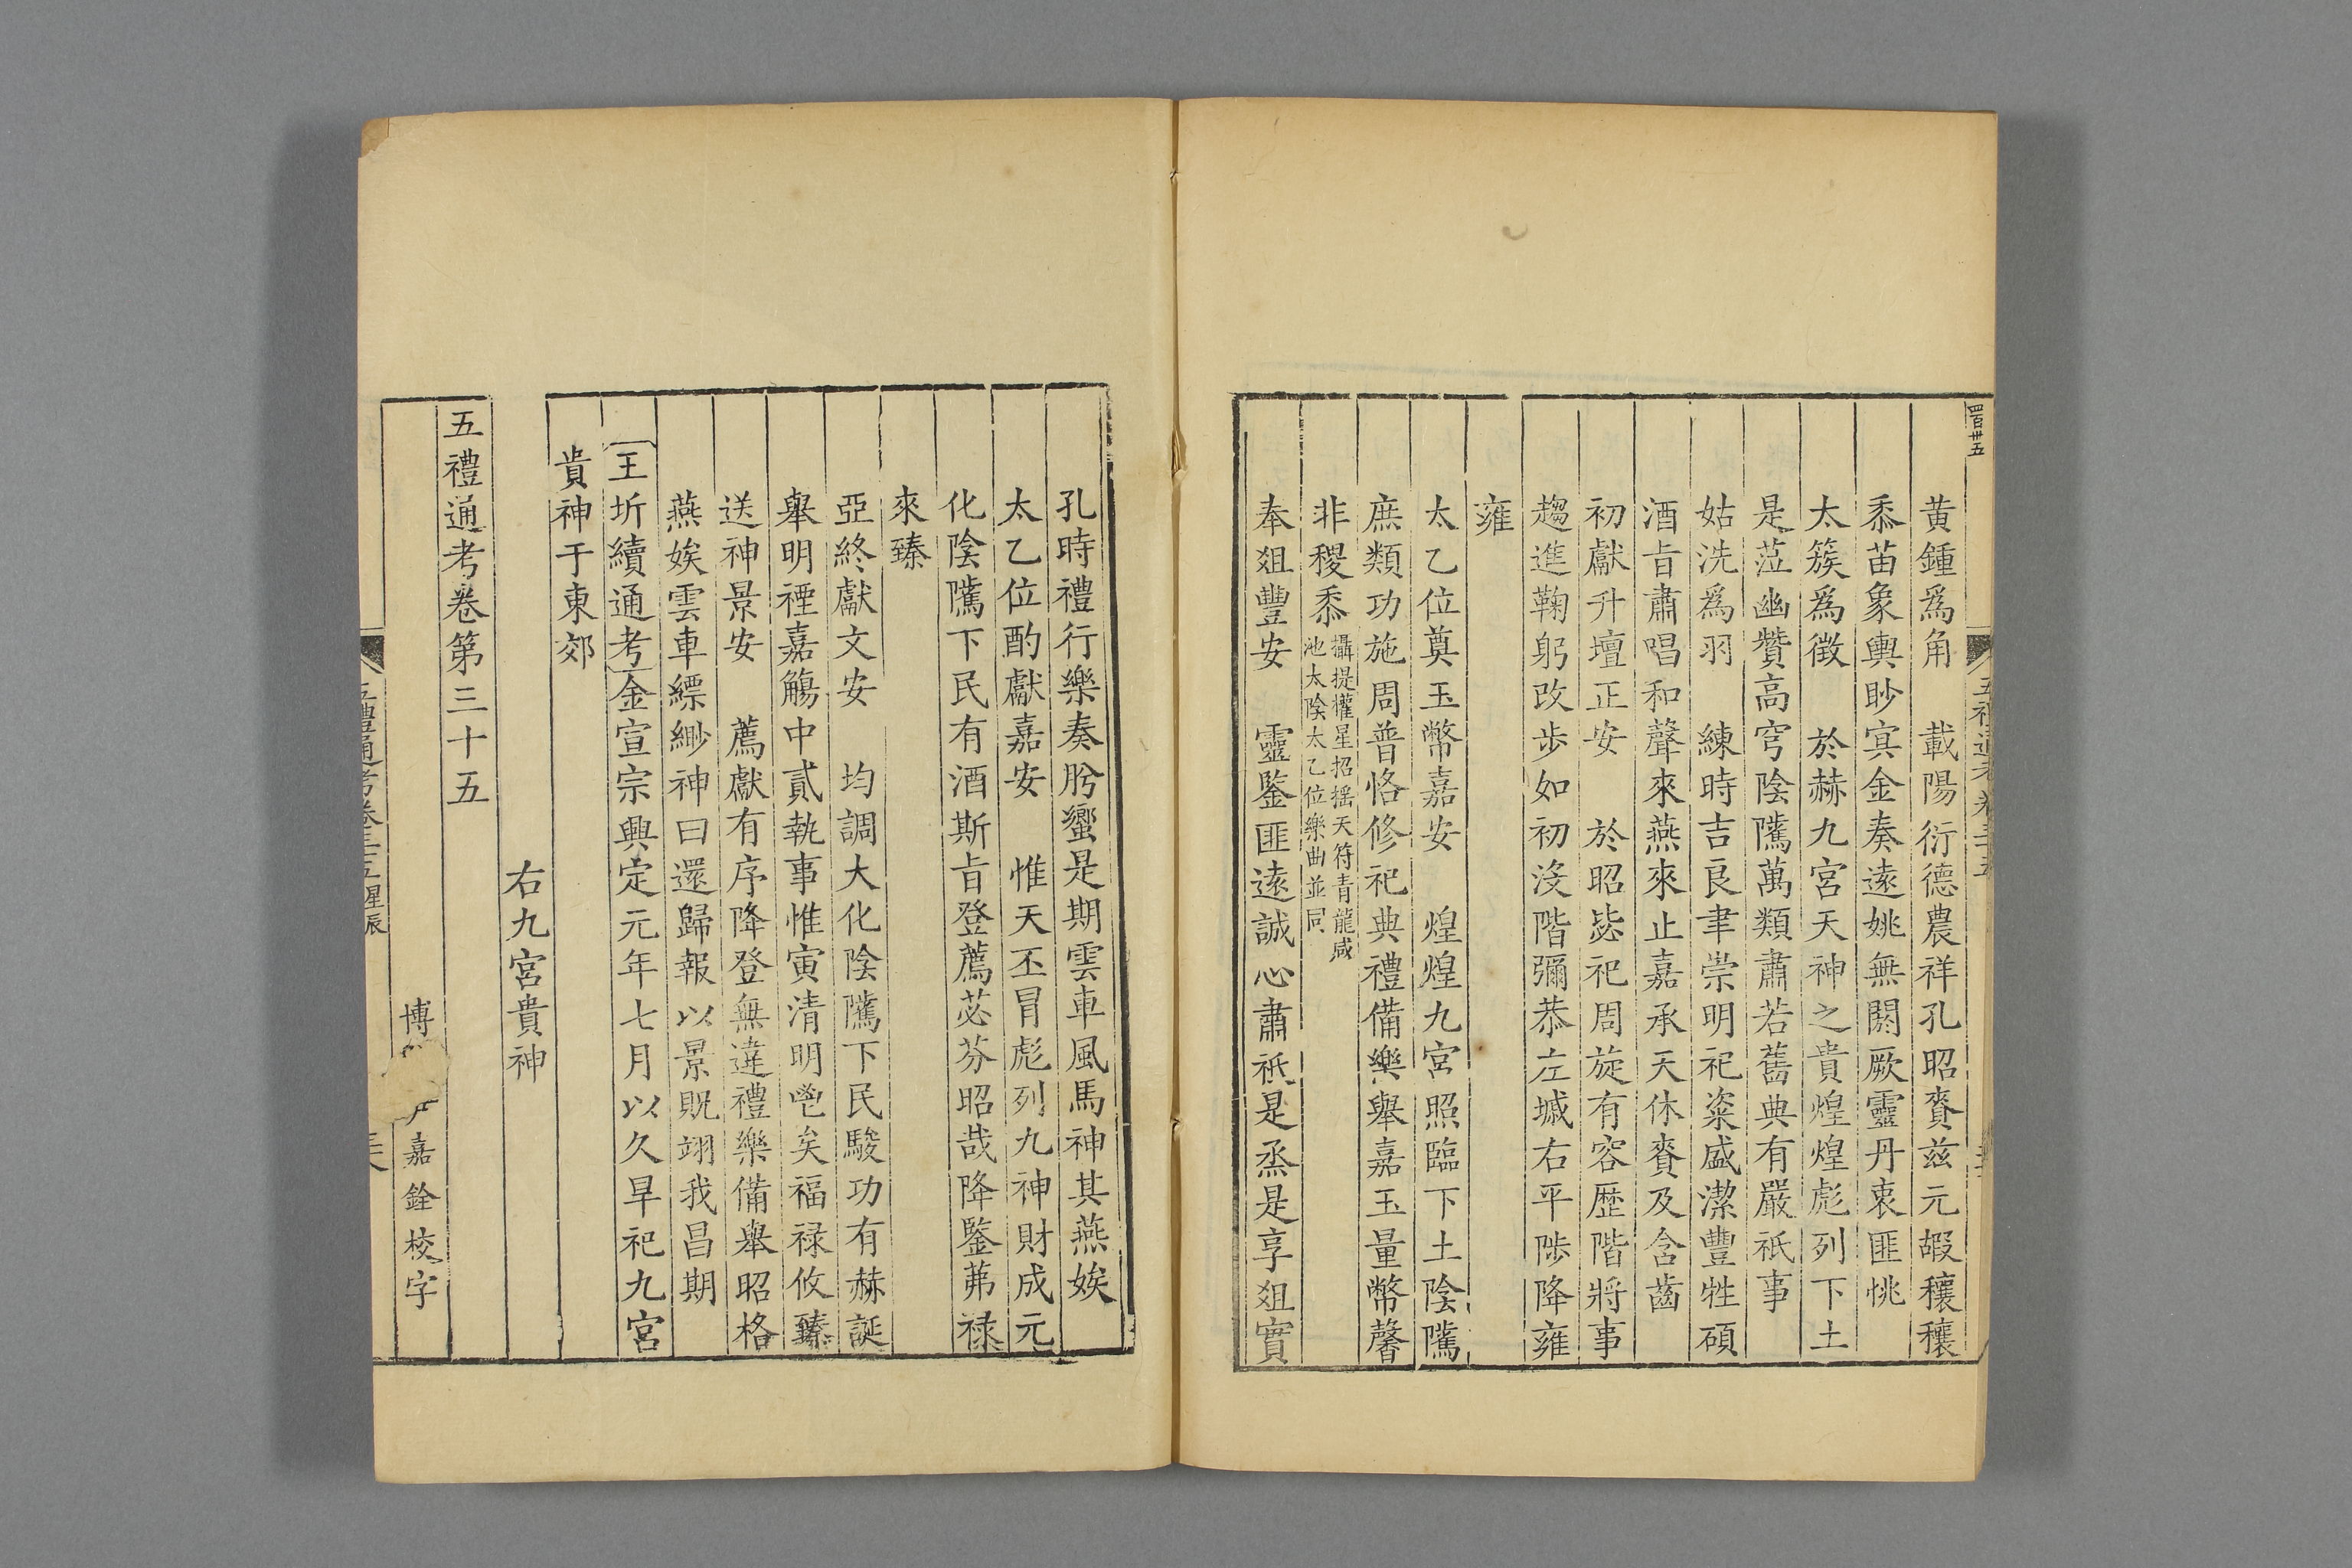 四百卅五
黄鍾爲角　載陽衍德農祥孔昭賚兹元嘏穰穰
黍苗象輿眇㝠金奏遠姚無閼厥靈丹衷匪恌
太簇爲徵　於赫九宮天神之貴煌煌彪列下土
是蒞幽贊高穹陰隲萬類肅若舊典有嚴祇事
姑洗爲羽　練時吉良聿崇明祀粢盛潔豐牲碩
酒旨肅唱和聲來燕來止嘉承天休賚及含齒
初獻升壇正安　於昭毖祀周旋有容歷階將事
趨進鞠躬改步如初沒階彌恭左墄右平陟降雍
雍
太乙位奠玉幣嘉安　煌煌九宮照臨下土陰隲
庶類功施周普恪修祀典禮備樂舉嘉玉量幣馨
非稷黍攝提權星招揺天符青龍咸
池太陰太乙位樂曲並同
奉俎豐安　靈鑒匪遠誠心肅祇是烝是享俎實
孔時禮行樂奏肸蠁是期雲車風馬神其燕娭
太乙位酌獻嘉安　惟天丕冒彪列九神財成元
化陰隲下民有酒斯旨登薦苾芬昭哉降鑒茀禄
來臻
亞終獻文安　均調大化陰隲下民駿功有赫誕
舉明禋嘉觴中貳執事惟寅清明鬯矣福禄攸臻
送神景安　薦獻有序降登無違禮樂備舉昭格
燕娭雲車縹緲神曰還歸報以景貺翊我昌期
王圻續通考金宣宗興定元年七月以久旱祀九宮
貴神于東郊
右九宮貴神
五禮通考卷第三十五
博
嘉銓校字
五禮通考卷三十五星辰